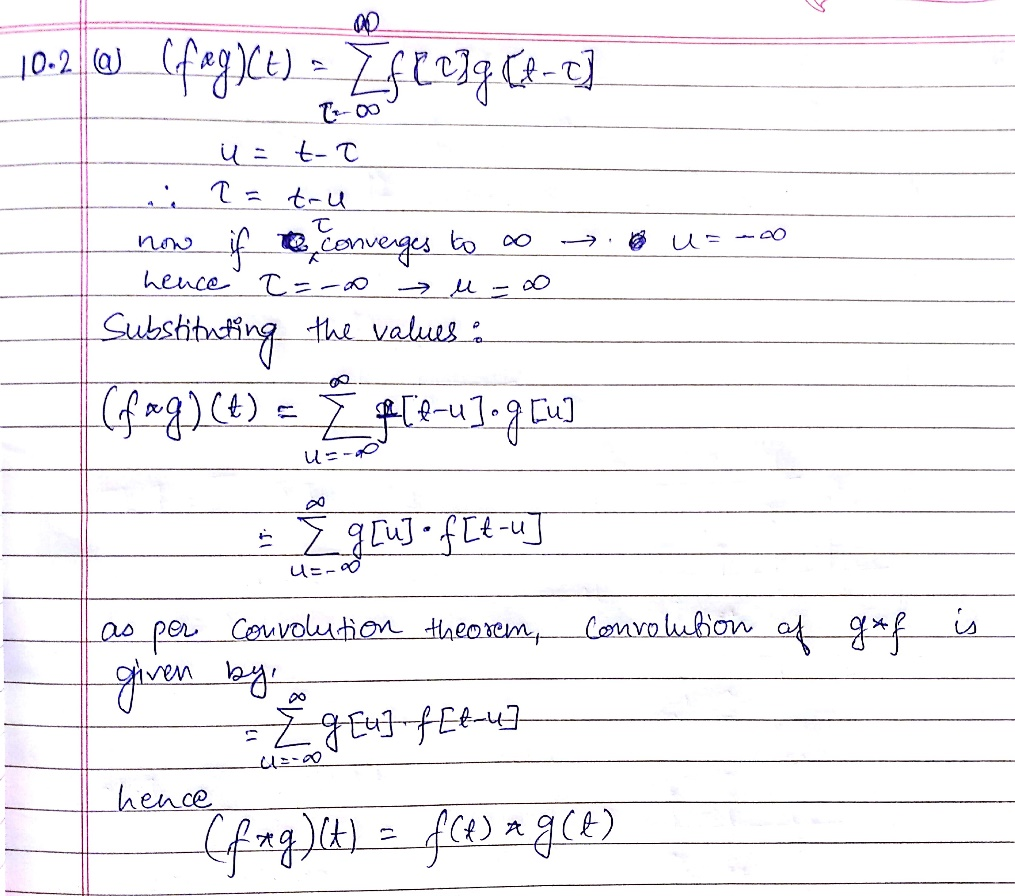 10.2 (a) (f*g)(t) = ∞∑τ=-∞ f[τ]g[t-τ]
u = t-τ
∴ τ = t-u
now if τ converges to ∞ → u = -∞
hence τ = -∞ → u = ∞
Substituting the values:
(f*g)(t) = ∞∑u=-∞ f[t-u]·g[u]
= ∞∑u=-∞ g[u]·f[t-u]
as per Convolution theorem, Convolution of g*f is
given by,
= ∞∑u=-∞ g[u]·f[t-u]
hence
(f*g)(t) = f(t) * g(t)